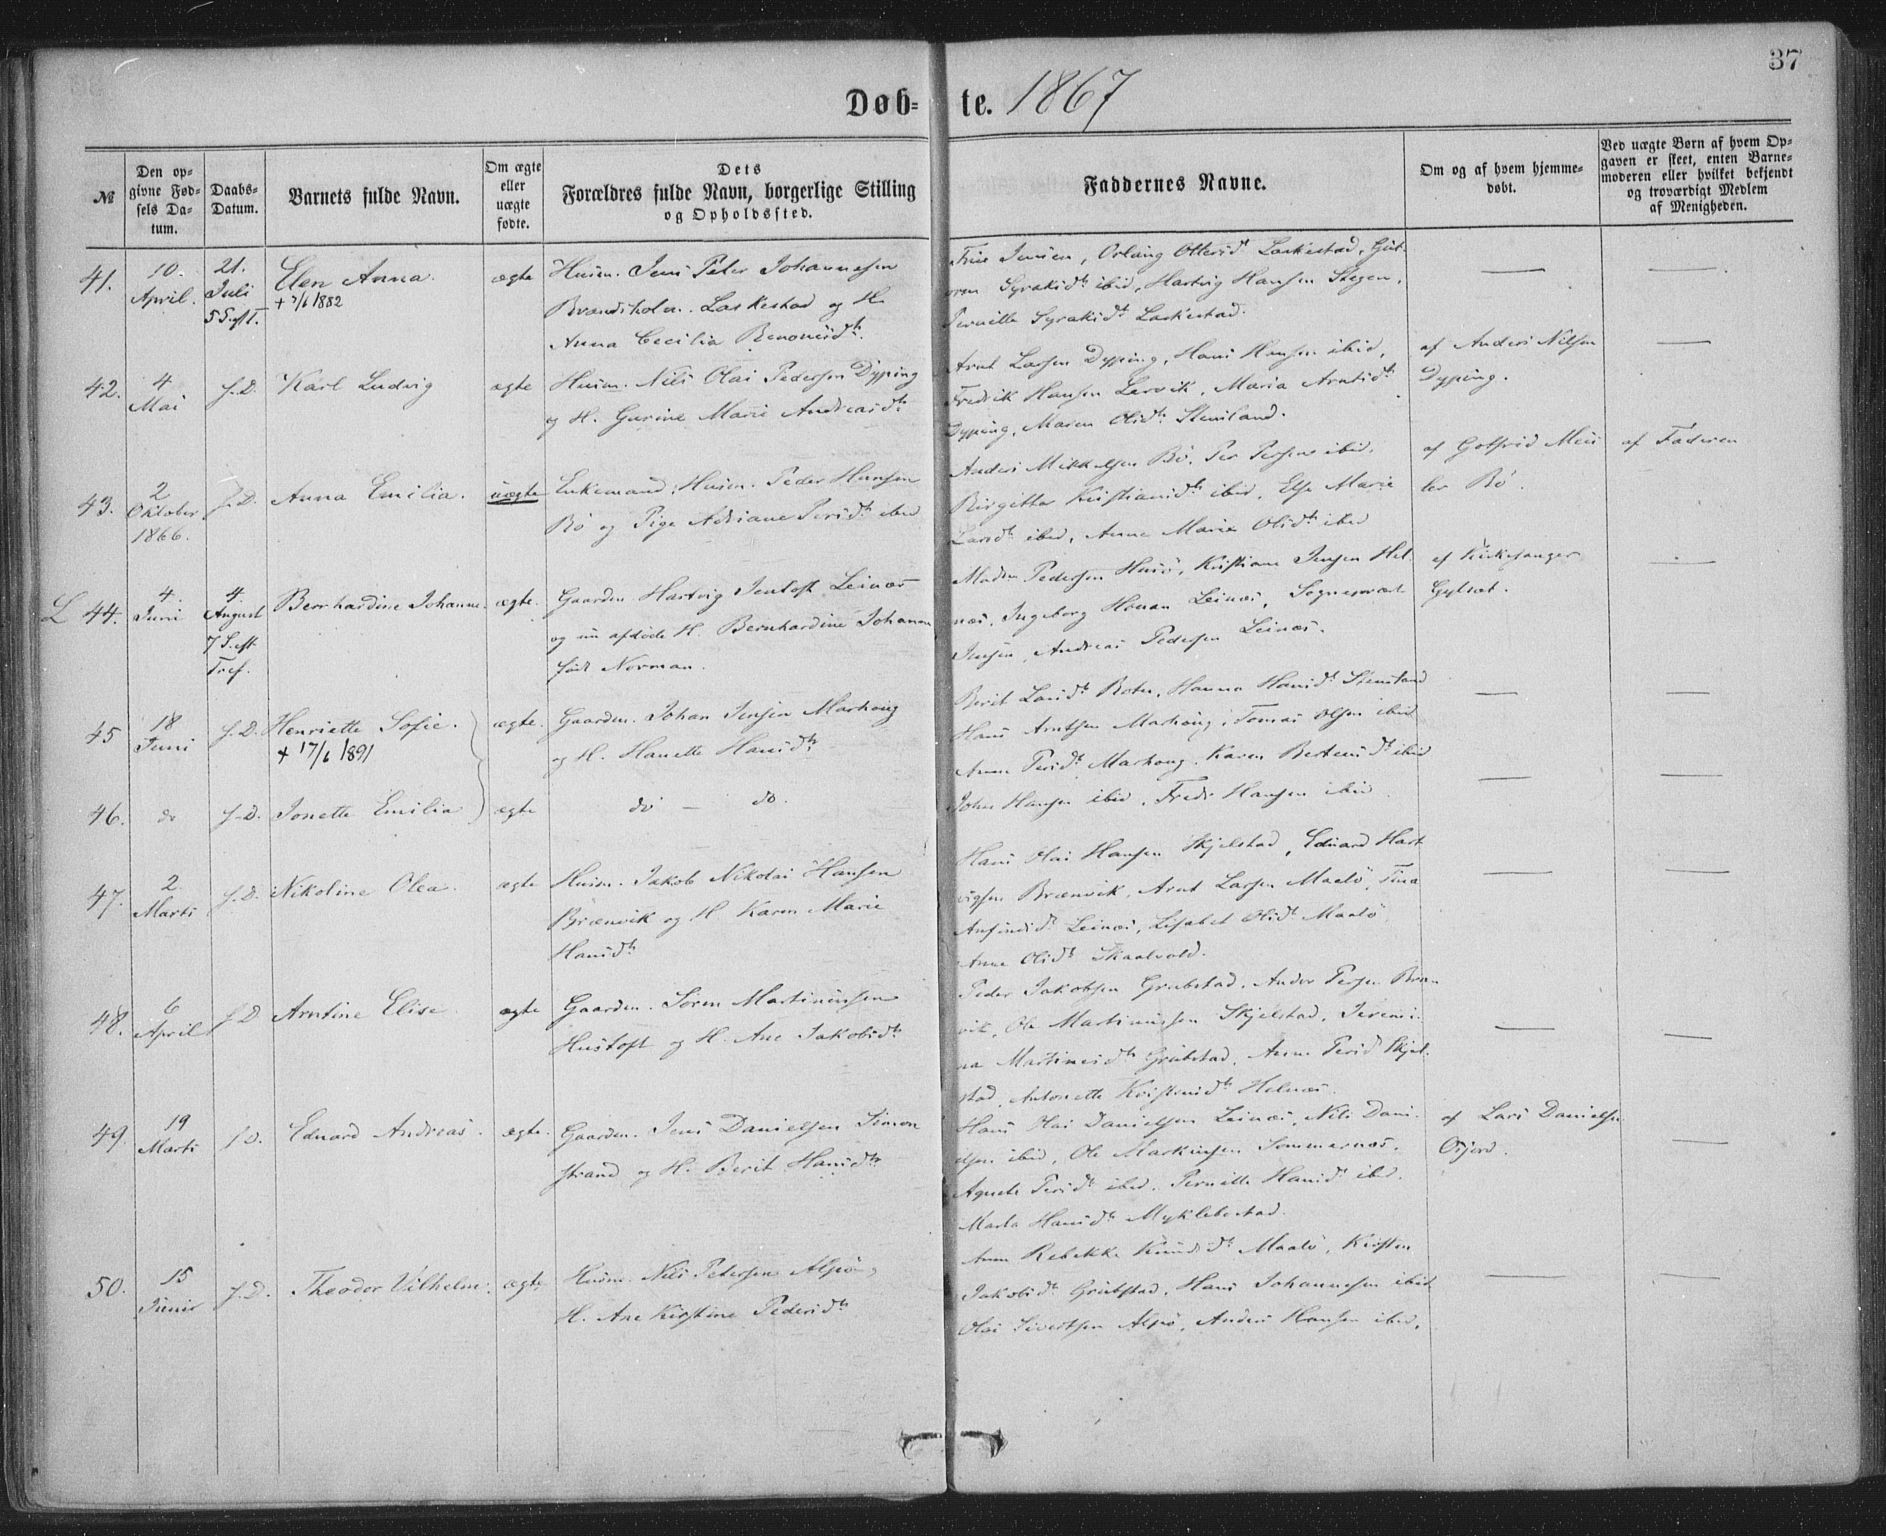 37
Døb- te. 1867
№
Den op-
givne Fød-
sels Da-
tum.
Daabs-
Datum.
Barnets fulde Navn.
Om ægte
eller
uægte
fødte.
Dets
Forældres fulde Navn, borgerlige Stilling
og Opholdssted.
Faddernes Navne.
Om og af hvem hjemme-
døbt.
Ved uægte Børn af hvem Op-
gaven er skeet, enten Barne-
moderen eller hvilket bekjendt
og troværdigt Medlem
af Menigheden.
41.
10.
April.
21.
Juli
5 S. eft T.
Elen Anna.
+ 7/6 1882
ægte
Husm. Jens Peter Johannesen
Brændsholm. Laskestad og H.
Anna Cecilia Benonisdtr.
Jensen, Laskestad, Gut-
orm ibid, Hartvig Hansen Stegen,
Pernille Laskestad.
42.
4
Mai
s. D.
Karl Ludvig
ægte
Husm. Nils Olai Pedersen Dyping
og H. Gurine Marie Andreasdtr
Arnt Larsen Dyping, Hans Hansen ibid,
Fredrik Hansen Lervik, Maria Arntsdtr
Dyping, Maren Olsdtr Stensland.
af Anders Nilsen
Dyping.
43.
2
Oktober
1866.
s. D.
Anna Emilia.
uægte
Enkemand, Husm. Peder Hansen
Bø og Pige Adriane Persdtr ibid
Anders Mikkelsen Bø, Per Persen ibid,
Birgitta Kristiansdtr ibid, Else Marie
Larsdtr ibid, Anne Marie Olsdtr ibid
af Gotfrid Meis
ler Bø.
af Faderen
L 44.
4.
Juni
4.
August
7 S. eft
Tref.
Bernhardine Johanne.
ægte.
Gaardm. Hartvig Jentoft Leines
og nu afdøde H. Bernhardine Johanna
født Norman.
Pedersen Husø, Kristiane Jensen Hel-
nes, Ingeborg Leines, Sogneprest
Jensen, Andreas Pedersen Leines.
af Kirkesanger
Gylset.
45
18
Juni
s. D.
Henriette Sofie.
+ 17/6 1891
ægte.
Gaardm. Johan Jensen Marhoug
og H. Hanette Hansdtr
Berit Larsdtr Botn, Hanna Hansdtr Stensland
Hans Arntsen Marhoug, Tomas Olsen ibid
46.
do
s. D.
Jonette Emilia
ægte
do — do.
Anne Persdtr Marhoug. Karen Berteusdtr ibid
John Hansen ibid, Fredr Hansen ibid.
47.
2.
Marts
s. D.
Nikoline Olea.
ægte
Husm. Jakob Nikolai Hansen
Brænvik og H. Karen Marie
Hansdtr
Hans Olai Hansen Skjelstad, Edvard Hart
vigsen Brænvik, Arnt Larsen Maalø,
Leines, Lisabet Olsdtr Maalø,
Anne Olsdtr Skaalvold.
48.
6
April
s. D
Arntine Elise.
ægte
Gaardm. Søren Martinussen
Hustoft og H. Ane Jakobsdtr
Peder Jakobsen Grubstad, Andor Persen Bræn
vik, Ole Martinussen Skjelstad,
na Martinesdtr Grubstad, Anne Persd Skjel-
stad, Antonette Kristensdtr Helnes.
49.
19
Marts
s. D.
Edvard Andreas.
ægte.
Gaardm. Jens Danielsen Simon
strand og H. Berit Hansdtr
Hans Olai Danielsen Leines, Nils Dani-
elsen ibid, Ole Markusen Sommernes.
Agnete Persdtr ibid. Pernille Hansdtr ibid.
Marta Hansdtr Myklebostad.
af Lars Danielsen
50.
15
Juni
s. D.
Theodor Vilhelm.
ægte
Husm. Nils Petersen Alpø og
H. Ane Kirstine Pedersdtr
Ann Rebekke Knudsdtr Maalø, Kirsten
Jakobsdtr Grubstad, Hans Johannesen ibid
Olai Sivertsen Alpø, Anders Hansen ibid.